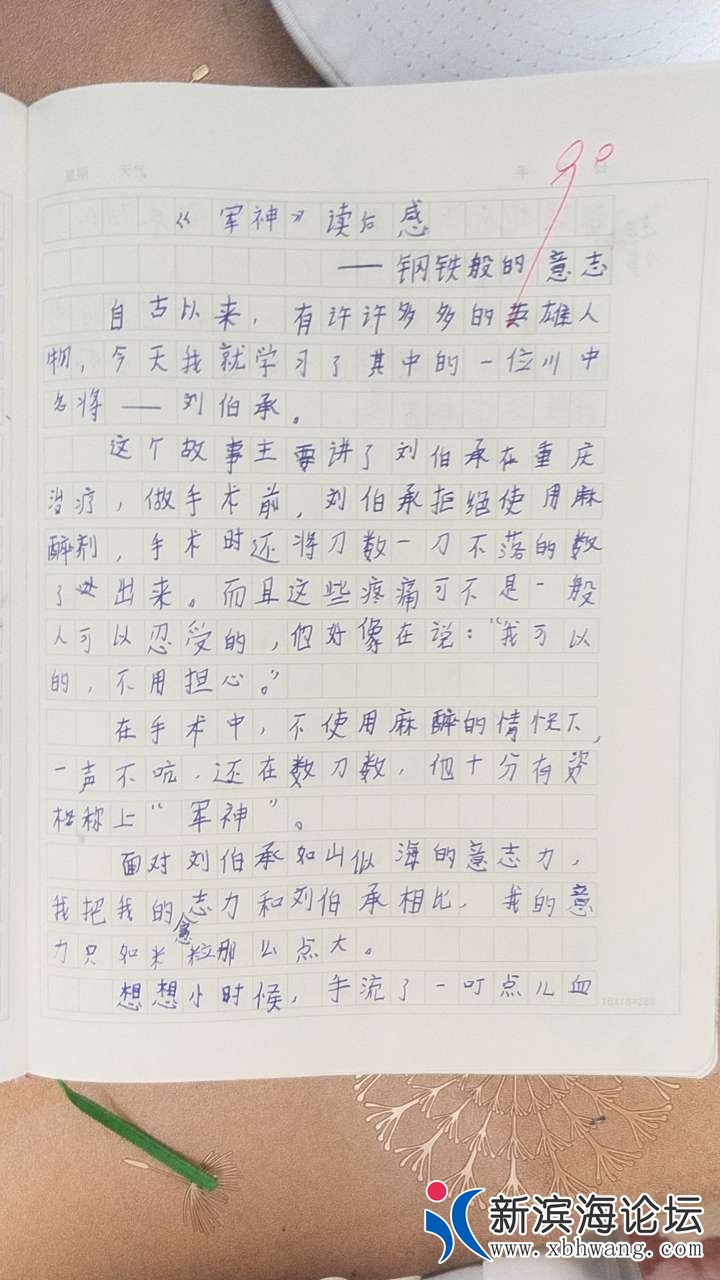 星期 天气 年 日
90
《军神》读后感
——钢铁般的意志
自古以来，有许许多多的英雄人
物，今天我就学习了其中的一位川中
名将——刘伯承。
这个故事主要讲了刘伯承在重庆
治疗，做手术前，刘伯承拒绝使用麻
醉剂，手术时还将刀数一刀不落的数
了出来。而且这些疼痛可不是一般
人可以忍受的，他好像在说：“我可以
的，不用担心。”
在手术中，不使用麻醉的情况下，
一声不吭，还在数刀数，他十分有资
格称上“军神”。
面对刘伯承如山似海的意志力，
我把我的意志力和刘伯承相比，我的意
力只如米粒那么点大。
想想小时候，手流了一叮点儿血
16X18=288
新滨海论坛
www.xbhwang.com